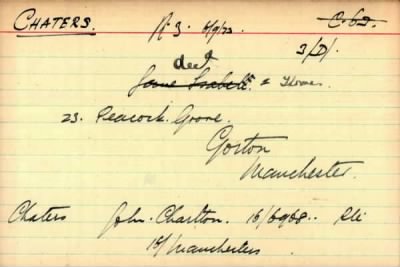 CHATERS. R 3. 6/9/23 C.62.
3/D/.
decd
Jane Isabell & Thomas.
23. Peacock Grove.
Gorton
Manchester.
Chaters John. Charlton. 16/6968.. Pte
16/Manchesters